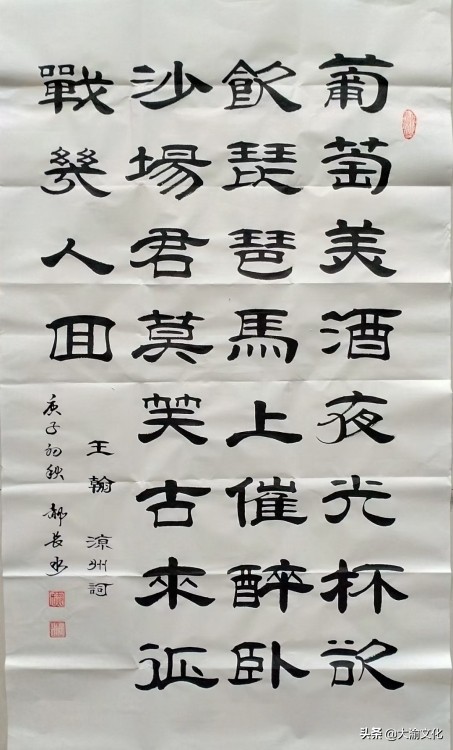 葡萄美酒夜光杯欲
飲琵琶馬上催醉卧
沙場君莫笑古來征
戰幾人回
王翰 凉州詞
庚子初秋
头条 @大渝文化